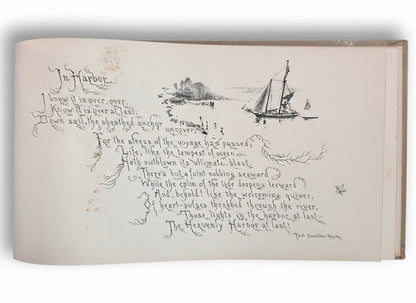 In Harbor.
I know it is over, over,
Know it is over at last:
Down sail, the sheathed anchor uncover,
For the stress of the voyage has passed;
Life, like the tempest of ocean
Hath outblown its ultimate blast.
There's but a faint sobbing seaward
While the calm of the tide deepens leeward
And behold! like the welcoming quiver,
Of heart-pulses throbbed through the river,
Those lights in the harbor at last
The Heavenly Harbor at last!
Paul Hamilton Hayne